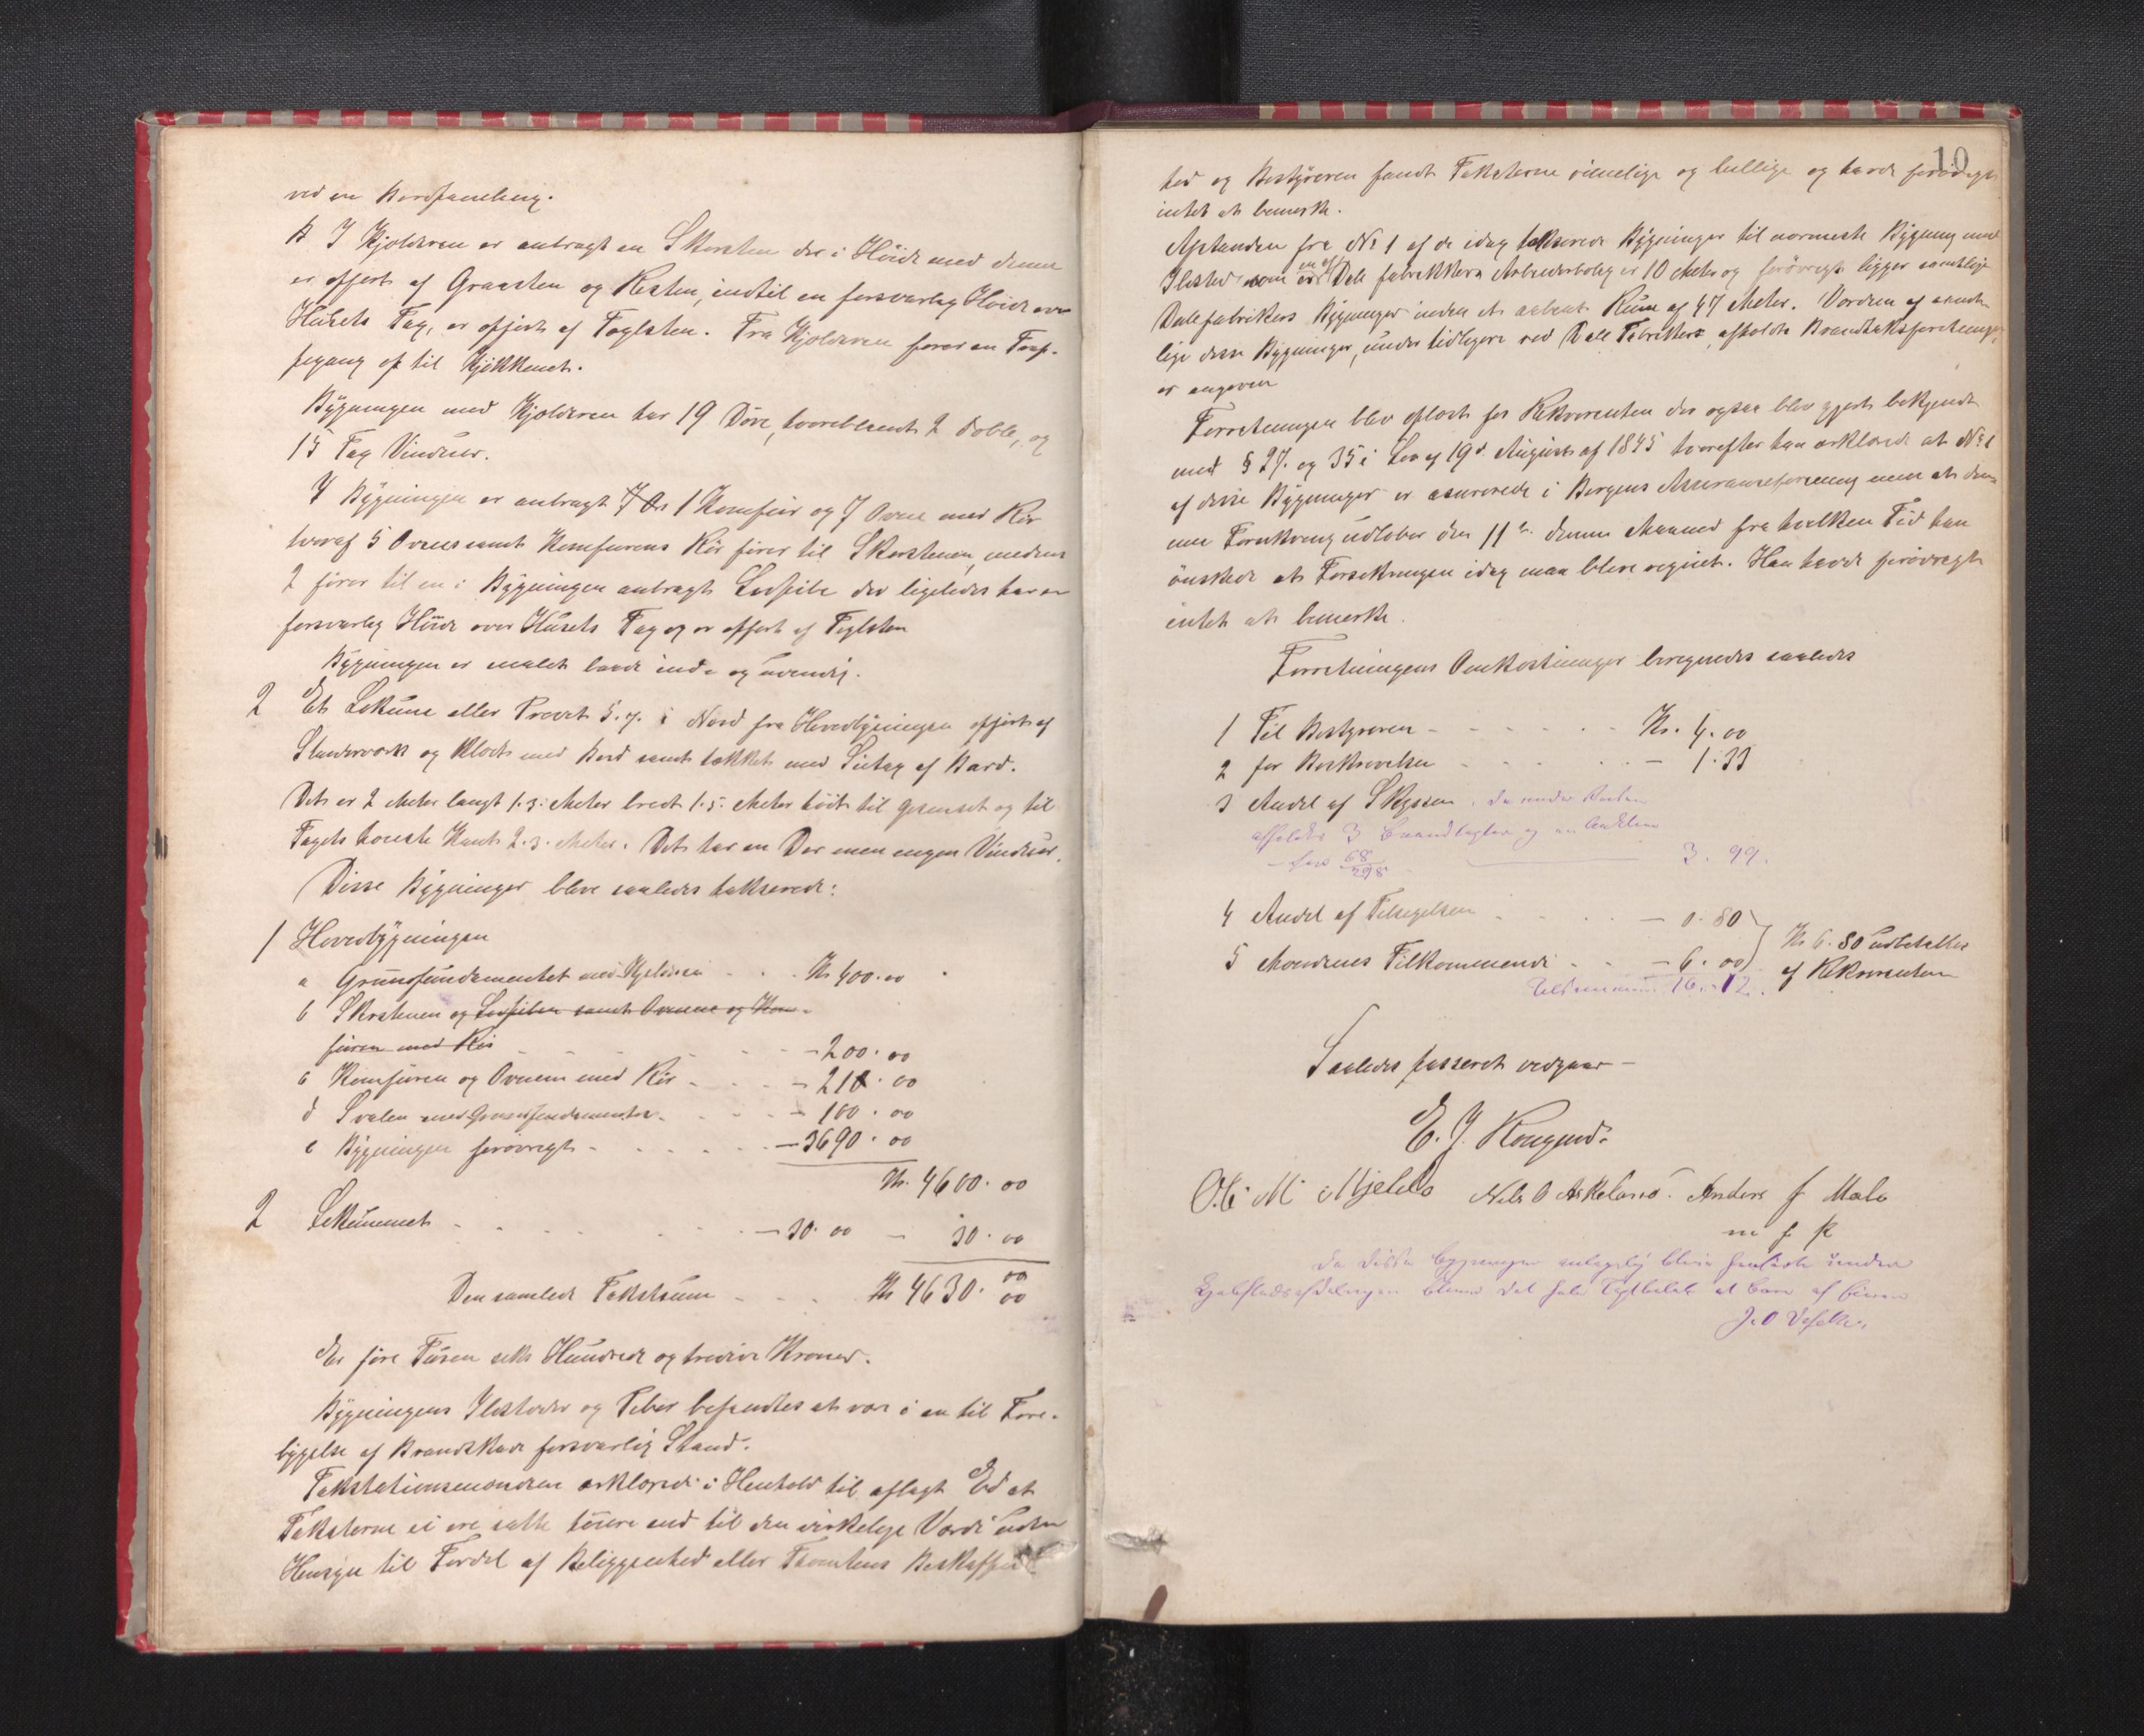 ved en Bordpaneling.
B. I Kjelderen er anbragt en Skorsten der i Høide med denne
er opført af Graasten og Resten, indtil en forsvarlig Høide over
Husets Tag, er opført af Teglsten. Fra Kjelderen fører en Trap-
pegang op til Kjøkkenet.
Bygningen med Kjelderen har 19 Døre, hvoriblandt 2 doble, og
15 Fag Vinduer.
I Bygningen er anbragt 1 Komfur og 7 Ovne med Rør
hvoraf 5 Ovnes samt Komfurens Rør fører til Skorstenen, medens
2 fører til en i Bygningen anbragt der ligeledes har en
forsvarlig Høide over Husets Tag og er opført af Teglsten
Bygningen er malet baade ind- og udvendig.
2 Et Lokume eller Privet i Nord fra Hovedbygningen opført af
Stenderværk og klædt med Bord samt tækket med af Bord.
Det er 2 Meter langt 1.3. Meter bredt 1.5. Meter høit til Gesimset og til
Tagets høieste Kant 2.3. Meter. Det har en Dør men ingen Vinduer.
Disse Bygninger bleve saaledes takserede:
1 Hovedbygningen
a Grundfundamentet med Kjelderen - . . Kr 400.00
b Skorstenen og samt Ovnene og Kom-
furen med Rør - - - - 200.00
c Komfuren og Ovnene med Rør - . . - 210.00
d Svalen med Grundfundamenter - . . - 100.00
e Bygningen forøvrigt - . . . . - 3690.00
Kr. 4600.00
2 Lokummet - . . . - 30.00 - 30.00
Den samlede Takstsum - - . Kr 4630.00
Er fire Tusen seks Hundrede og tredive Kroner.
Bygningens Ildsteder og Piber befandtes at være i en til Fore-
byggelse af Brandskade forsvarlig Stand.
Takstationsmændene erklærede i Henhold til aflagt Ed at
Taksterne ei ere satte høiere end til den virkelige Værdi uden
Hensyn til Fordel af Beliggenhed eller Tomtens Beskaffen-
10
hed og Bestyreren fandt Taksterne rimelige og billige og havde forøvrigt
intet at bemerke.
Afstanden fra No 1 af de idag takserede Bygninger til nærmeste Bygning med
Ildsted som er en af Dale fabrikkers Arbeiderbolig er 10 Meter og forøvrigt ligger samtlige
Dale fabrikers Bygninger inden et aabent Rum af 47 Meter. Værdien af samt-
lige disse Bygninger, under tidligere ved Dale Fabrikker afholdte Brandtaksforretninger,
er angiven
Forretningen blev oplæst for Rekvirenten der ogsaa blev gjort bekjendt
med § 27. og 35 i Lov af 19de August af 1845 hvorefter han erklærede at No 1
af disse Bygninger er assurerede i Bergens Assuranceforening men at den-
ne Forsikring udløber den 11te denne Maaned fra hvilken Tid han
ønskede at Forsikringen idag maa blive regnet. Han havde forøvrigt
intet at bemerke.
Forretningens Omkostninger beregnedes saaledes
1 Til Bestyreren - - - - - - Kr. 4.00
2 for Beskrivelsen - - - . . - 1.33
3 Andel af Skydsen, da under Reisen
afholdes 3 Brandtagster og en
- for 68/298 3.99.
4 Andel af Tilsigelsen - . . . - 0.80
5 Mændenes Tilkommende . . - 6.00
Kr 6.80 udbetaltes
af Rekvirenten
Tilsammen 16.12.
Saaledes passeret vedgaar -
E. J.
O. M. Mjelde Nils O Askeland. Anders J Male
m f P
Da disse Bygninger bleve under
det hele at bære af
J. O